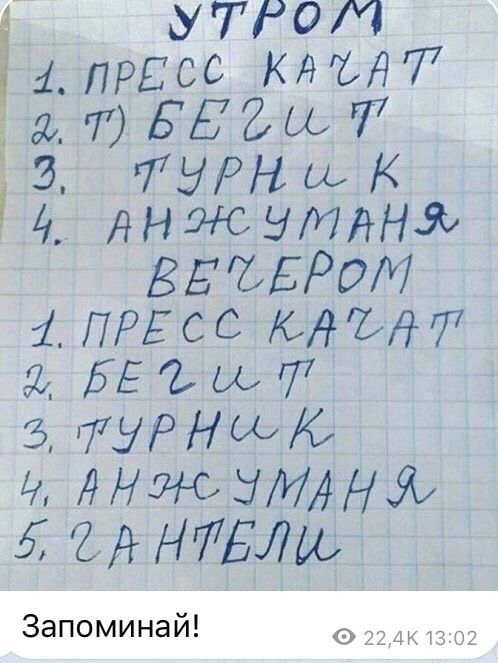 УТРОМ
1. ПРЕСС КАЧАТ
2. Т) БЕГИТ
3. ТУРНИК
4. АНЖУМАНЯ
ВЕЧЕРОМ
1. ПРЕСС КАЧАТ
2. БЕГИТ
3. ТУРНИК
4. АНЖУМАНЯ
5. ГАНТЕЛИ
Запоминай!
22,4K 13:02